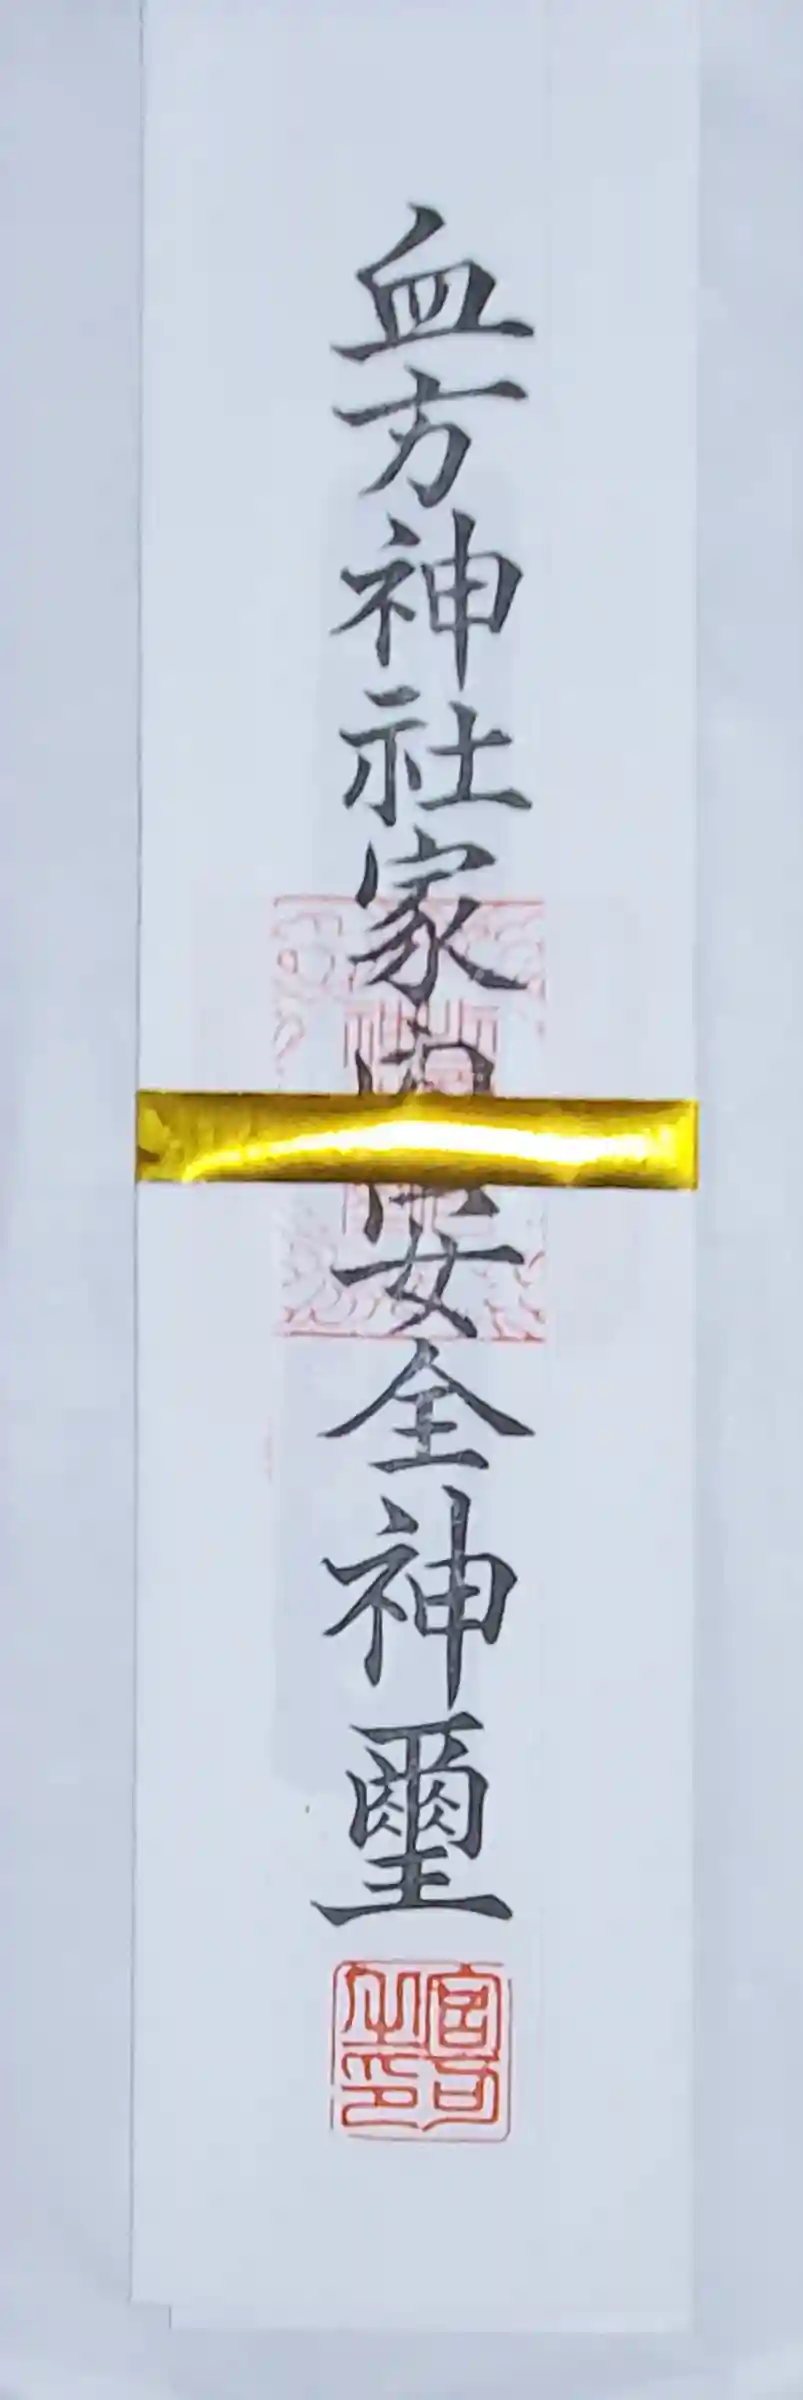 血方神社家内安全神璽
宮司之印